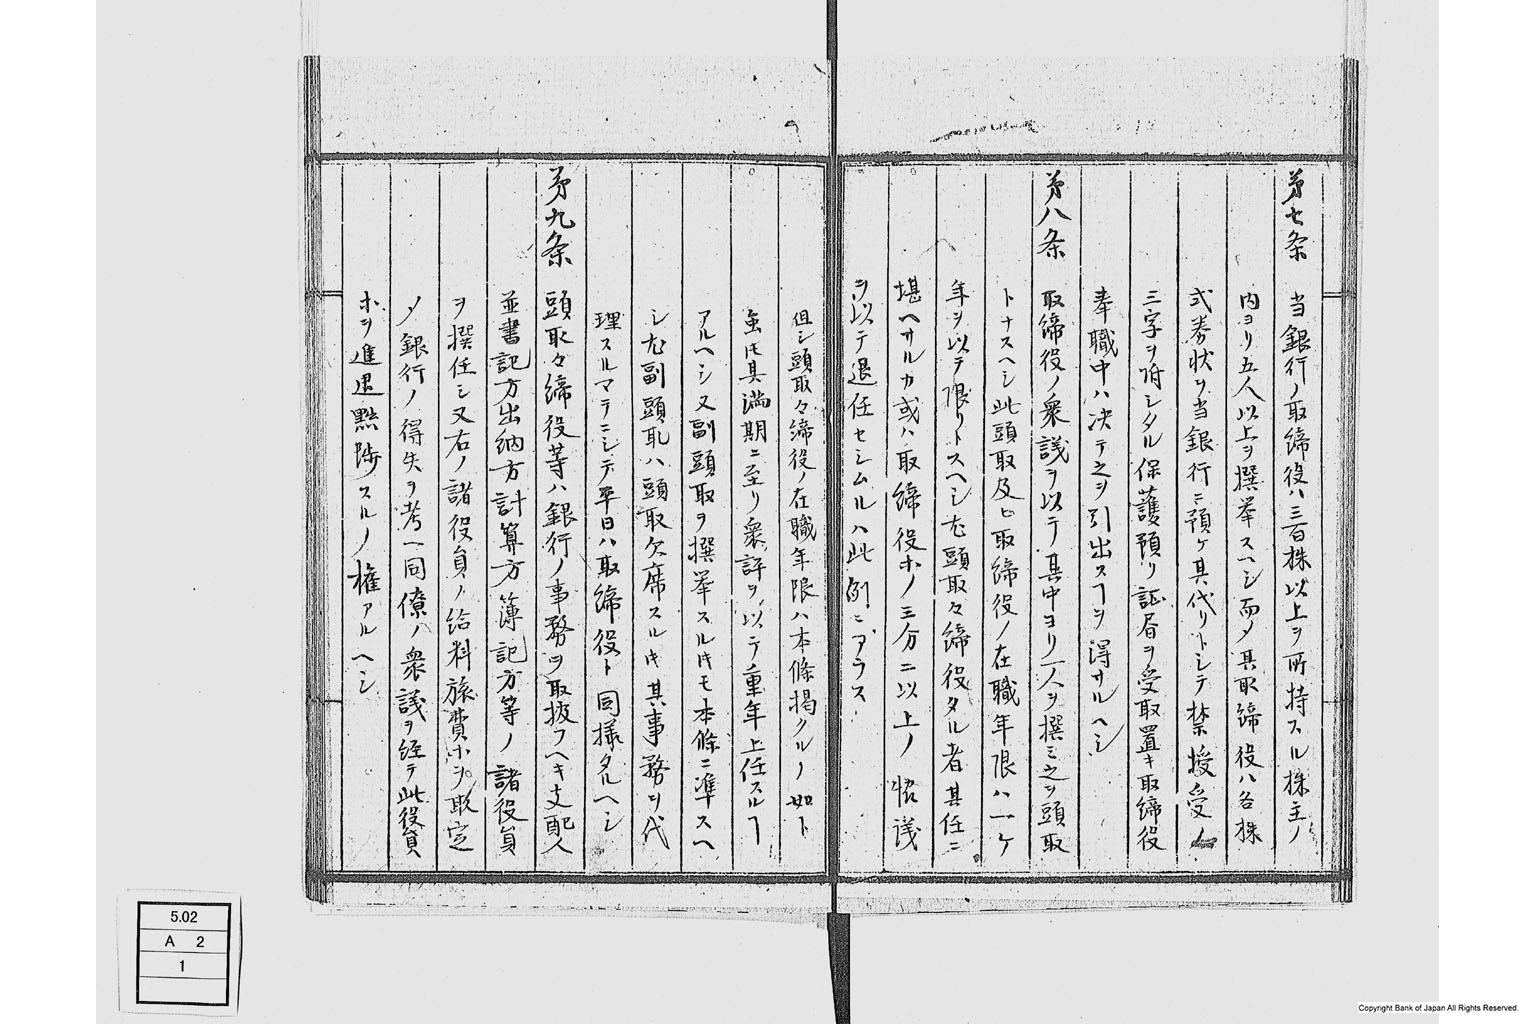 第七条 当銀行ノ取締役ハ三百株以上ヲ所持スル株主ノ
内ヨリ五人以上ヲ撰挙スヘシ而メ其取締役ハ各株
式券状ヲ当銀行ニ預ケ其代リトシテ禁授受
三字ヲ附シタル保護預リ証書ヲ受取置キ取締役
奉職中ハ决テ之ヲ引出スヿヲ得サルヘシ
第八条 取締役ノ衆議ヲ以テ其中ヨリ一人ヲ撰ミ之ヲ頭取
トナスヘシ此頭取及ヒ取締役ノ在職年限ハ一ケ
年ヲ以テ限リトスヘシ尤頭取々締役タル者其任ニ
堪ヘサルカ或ハ取締役ホノ三分ニ以上ノ 議
ヲ以テ退任セシムルハ此例ニアラス
但シ頭取々締役ノ在職年限ハ本條掲クルノ如ト
雖𪜈其満期ニ至リ衆評ヲ以テ重年上任スルヿ
アルヘシ又副頭取ヲ撰挙スル𪜈モ本條ニ準スヘ
シ尤副頭取ハ頭取欠席スルキ其事務ヲ代
理スルマテニシテ平日ハ取締役ト同様タルヘシ
第九条 頭取々締役等ハ銀行ノ事務ヲ取扱フヘキ支配人
並書記方出納方計算方簿記方等ノ諸役員
ヲ撰任シ又右ノ諸役員ノ給料旅費ホヲ取定
ノ銀行ノ得失ヲ考ヘ同僚ノ衆議ヲ経テ此役員
ホヲ進退黙陟スルノ権アルヘシ
5.02
A 2
1
Copyright Bank of Japan All Rights Reserved.